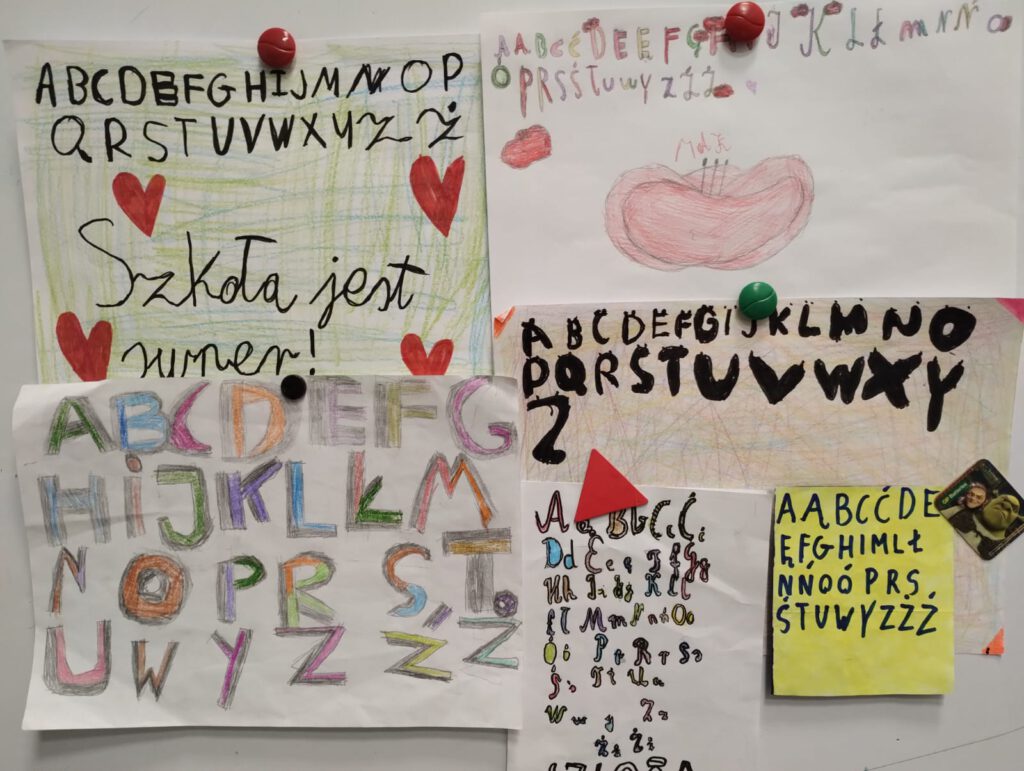 ABCDEFGHIJMNOP
QRSTUVWXYZŻ
Szkoła jest
super!
AĄBCĆDEĘFGHIJKLŁMNŃO
ÓPRSŚTUWYZŹŻ
ABCDEFGHIJKLMNO
PQRSTUVWXY
Z
ABCDEFG
HIJKLŁM
NOPRSŚT
UWYZŹŻ
Aą Bb Cc Ćć
Dd Ee Ęę Ff Gg
Hh Ii Jj Kk Ll
Łł Mm Nn Ńń Oo
Óó Pp Rr Ss
Śś Tt Uu
Ww y Zz
Źź Żż
AĄBCĆDE
ĘFGHIMLŁ
NŃOÓPRS
ŚTUWYZŹŻ